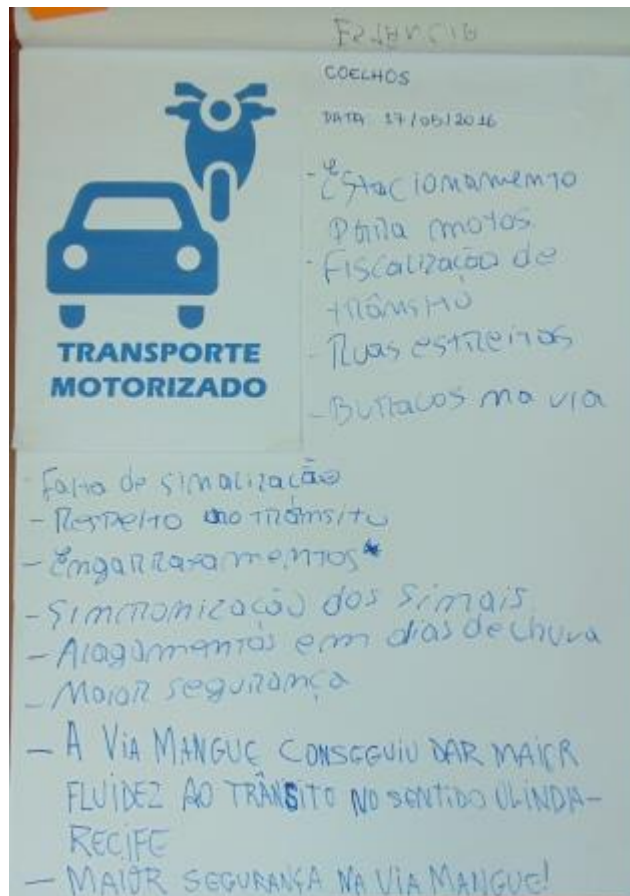 COELHOS
DATA: 17/05/2016
TRANSPORTE
MOTORIZADO
- Estacionamento
para motos.
- Fiscalização de
trânsito
- Ruas estreitas
- Burracos na via
- Falta de sinalização
- Respeito no trânsito
- Engarrafamentos*
- Sincronização dos sinais
- Alagamentos em dias de chuva
- Maior segurança
- A VIA MANGUE CONSEGUIU DAR MAIOR
FLUIDEZ AO TRÂNSITO NO SENTIDO OLINDA-
RECIFE
- MAIOR SEGURANÇA NA VIA MANGUE!